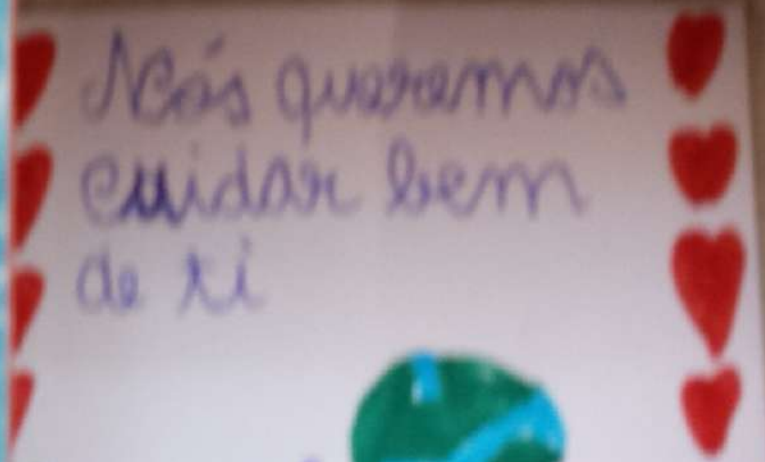 Nós queremos
cuidar bem
de ti